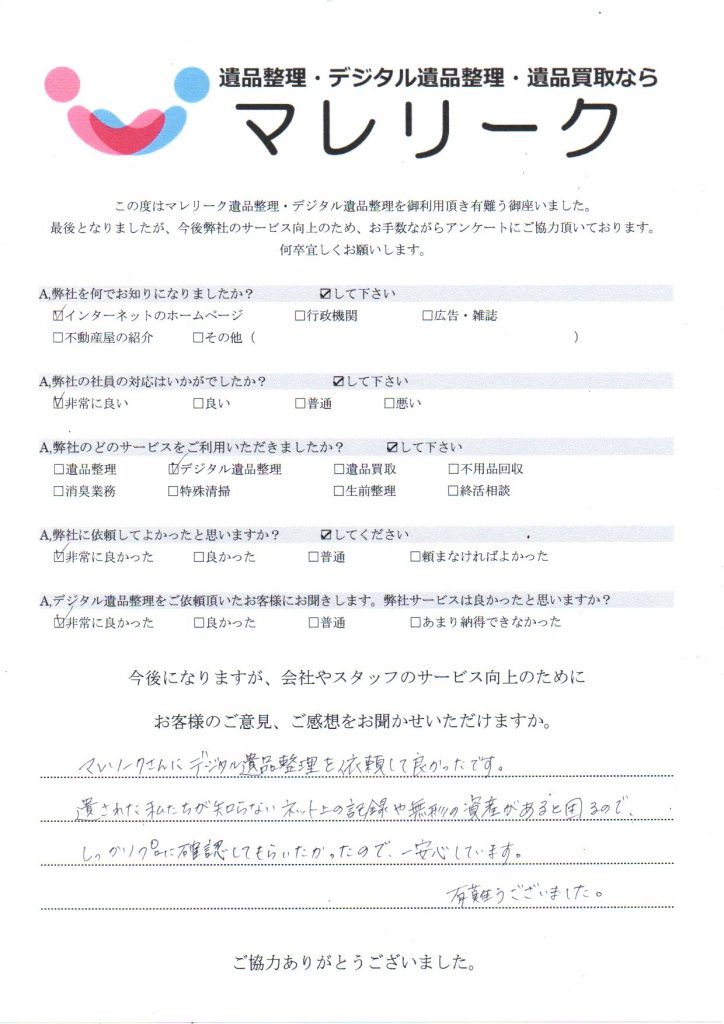 遺品整理・デジタル遺品整理・遺品買取なら
マレリーク
この度はマレリーク遺品整理・デジタル遺品整理を御利用頂き有難う御座いました。
最後となりましたが、今後弊社のサービス向上のため、お手数ながらアンケートにご協力頂いております。
何卒宜しくお願いします。
A,弊社を何でお知りになりましたか？ ☑して下さい
☑インターネットのホームページ □行政機関 □広告・雑誌
□不動産屋の紹介 □その他（ ）
A,弊社の社員の対応はいかがでしたか？ ☑して下さい
☑非常に良い □良い □普通 □悪い
A,弊社のどのサービスをご利用いただきましたか？ ☑して下さい
□遺品整理 ☑デジタル遺品整理 □遺品買取 □不用品回収
□消臭業務 □特殊清掃 □生前整理 □終活相談
A,弊社に依頼してよかったと思いますか？ ☑してください
☑非常に良かった □良かった □普通 □頼まなければよかった
A,デジタル遺品整理をご依頼頂いたお客様にお聞きします。弊社サービスは良かったと思いますか？
☑非常に良かった □良かった □普通 □あまり納得できなかった
今後になりますが、会社やスタッフのサービス向上のために
お客様のご意見、ご感想をお聞かせいただけますか。
マレリークさんにデジタル遺品整理を依頼して良かったです。
遺された私たちが知らないネット上の記録や無形の資産があると困るので、
しっかりプロに確認してもらいたかったので、一安心しています。
有難うございました。
ご協力ありがとうございました。